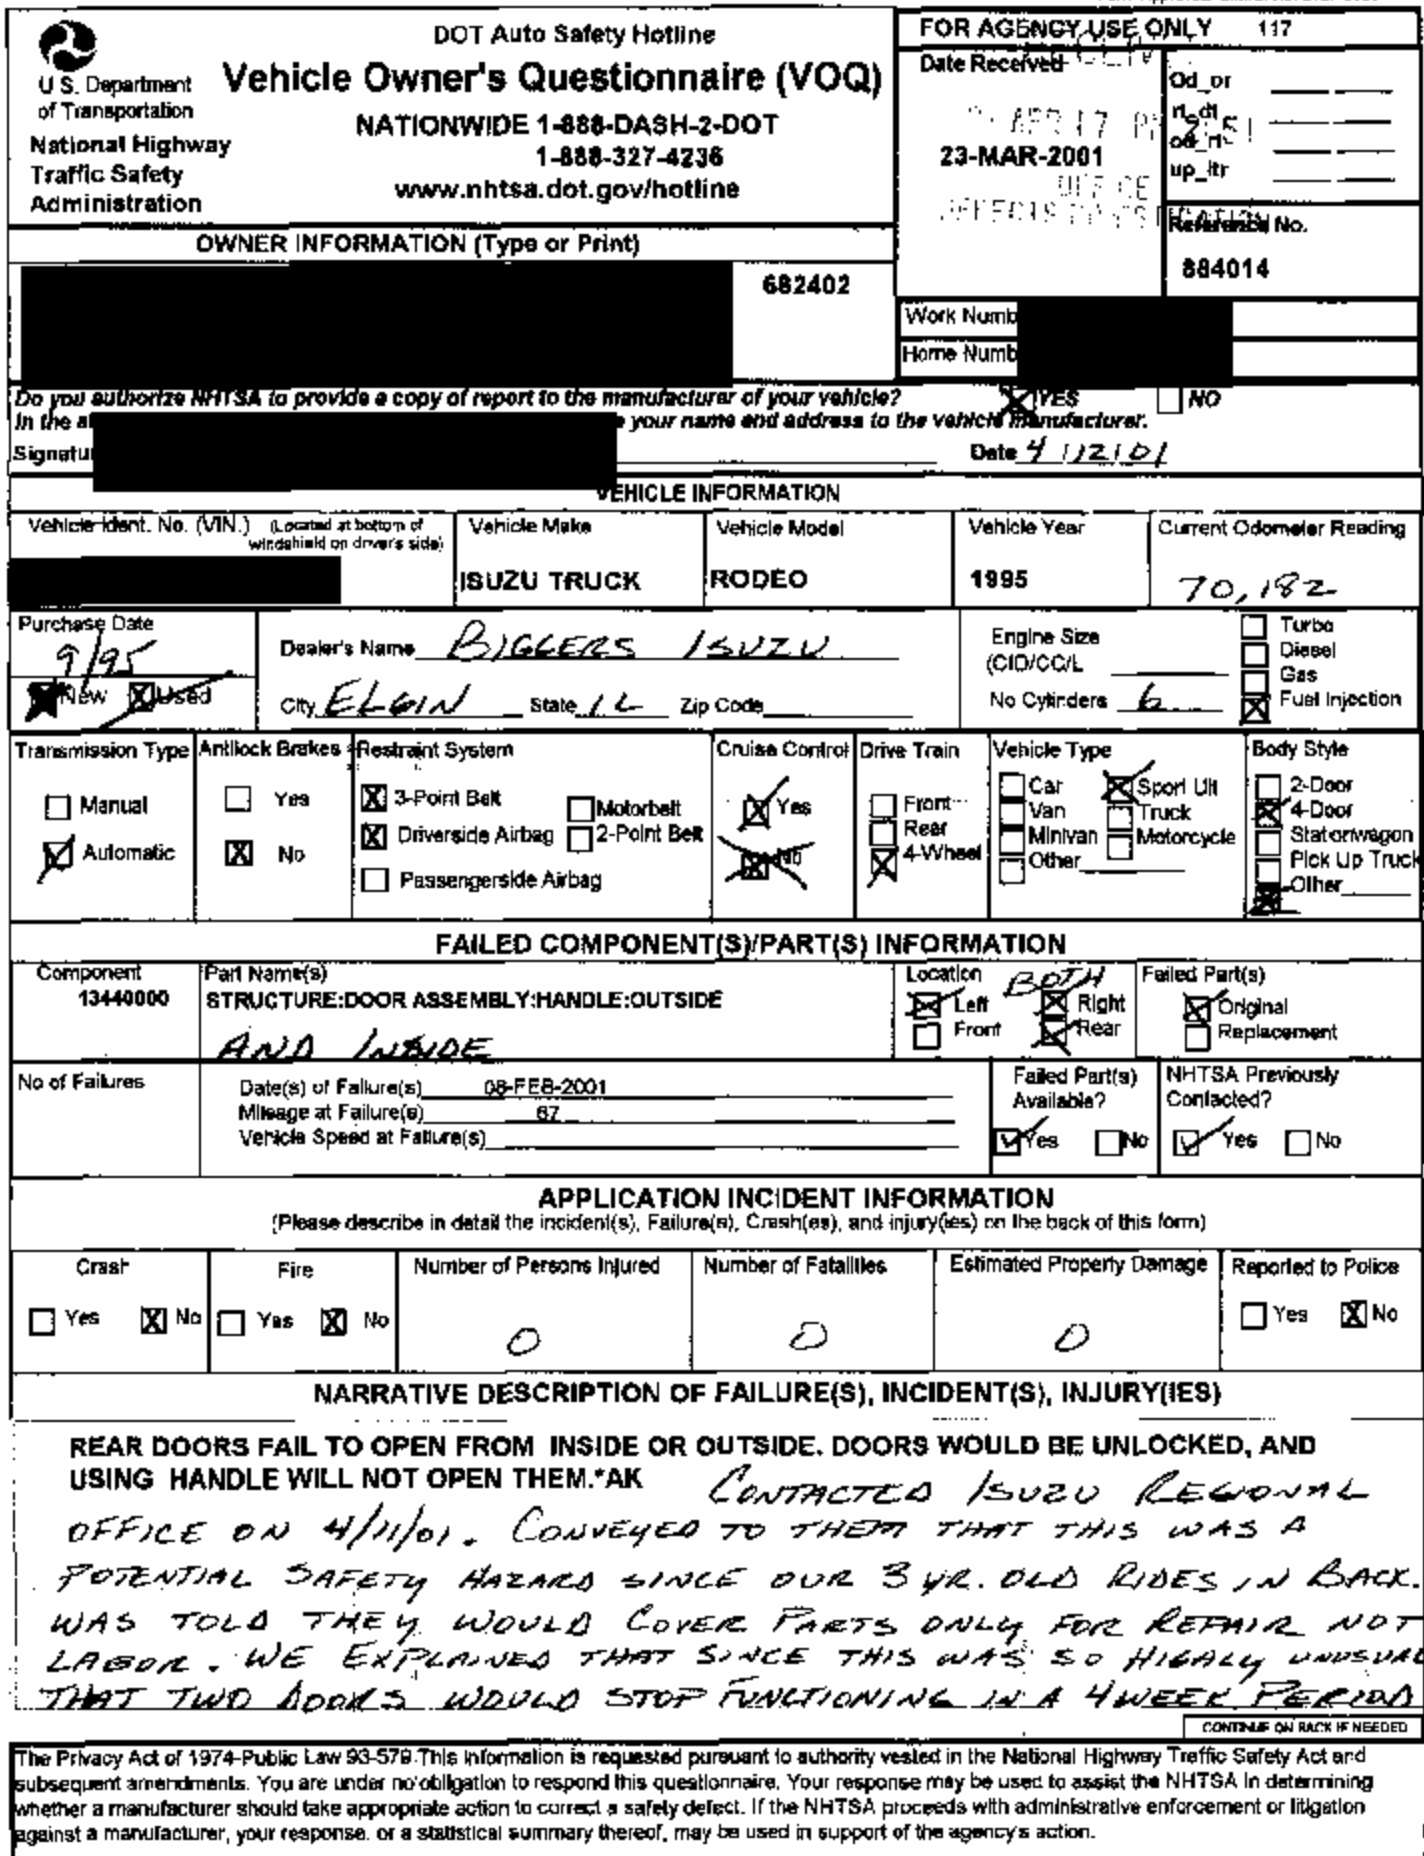 DOT Auto Safety Hotline
Vehicle Owner's Questionnaire (VOQ)
NATIONWIDE 1-888-DASH-2-DOT
1-888-327-4236
www.nhtsa.dot.gov/hotline
U S. Department
of Transportation
National Highway
Traffic Safety
Administration
FOR AGENCY USE ONLY 117
Date Received
23-MAR-2001
Od_or
rt_dt
od_rt
up_ltr
Reference No.
884014
OWNER INFORMATION (Type or Print)
682402
Work Numb
Home Numb
Do you authorize NHTSA to provide a copy of report to the manufacturer of your vehicle? YES NO
In the a your name and address to the vehicle manufacturer.
Signatu Date 4/12/01
VEHICLE INFORMATION
Vehicle Ident. No. (VIN.) (Located at bottom of
windshield on driver's side)
Vehicle Make
ISUZU TRUCK
Vehicle Model
RODEO
Vehicle Year
1995
Current Odometer Reading
70,182
Purchase Date
9/95
New Used
Dealer's Name BIGGERS ISUZU
City ELGIN State IL Zip Code
Engine Size
(CID/CC/L
No Cylinders 6
Turbo
Diesel
Gas
Fuel Injection
Transmission Type
Manual
Automatic
Antilock Brakes
Yes
No
Restraint System
3-Point Belt
Driverside Airbag
Passengerside Airbag
Motorbelt
2-Point Belt
Cruise Control
Yes
No
Drive Train
Front
Rear
4-Wheel
Vehicle Type
Car
Van
Minivan
Other
Sport Utl
Truck
Motorcycle
Body Style
2-Door
4-Door
Stationwagon
Pick Up Truck
Other
FAILED COMPONENT(S)/PART(S) INFORMATION
Component
13440000
Part Name(s)
STRUCTURE:DOOR ASSEMBLY:HANDLE:OUTSIDE
AND INSIDE
Location BOTH
Left Right
Front Rear
Failed Part(s)
Original
Replacement
No of Failures
Date(s) of Failure(s) 08-FEB-2001
Mileage at Failure(s) 67
Vehicle Speed at Failure(s)
Failed Part(s)
Available?
Yes No
NHTSA Previously
Contacted?
Yes No
APPLICATION INCIDENT INFORMATION
(Please describe in detail the incident(s), Failure(s), Crash(es), and injury(ies) on the back of this form)
Crash
Yes No
Fire
Yes No
Number of Persons Injured
0
Number of Fatalities
0
Estimated Property Damage
0
Reported to Police
Yes No
NARRATIVE DESCRIPTION OF FAILURE(S), INCIDENT(S), INJURY(IES)
REAR DOORS FAIL TO OPEN FROM INSIDE OR OUTSIDE. DOORS WOULD BE UNLOCKED, AND
USING HANDLE WILL NOT OPEN THEM.*AK CONTACTED ISUZU REGIONAL
OFFICE ON 4/11/01. CONVEYED TO THEM THAT THIS WAS A
POTENTIAL SAFETY HAZARD SINCE OUR 3 YR. OLD RIDES IN BACK.
WAS TOLD THEY WOULD COVER PARTS ONLY FOR REPAIR NOT
LABOR. WE EXPLAINED THAT SINCE THIS WAS SO HIGHLY UNUSUAL
THAT TWO DOORS WOULD STOP FUNCTIONING IN A 4 WEEK PERIOD
CONTINUE ON BACK IF NEEDED
The Privacy Act of 1974-Public Law 93-579 This information is requested pursuant to authority vested in the National Highway Traffic Safety Act and
subsequent amendments. You are under no obligation to respond this questionnaire. Your response may be used to assist the NHTSA in determining
whether a manufacturer should take appropriate action to correct a safety defect. If the NHTSA proceeds with administrative enforcement or litigation
against a manufacturer, your response. or a statistical summary thereof, may be used in support of the agency's action.